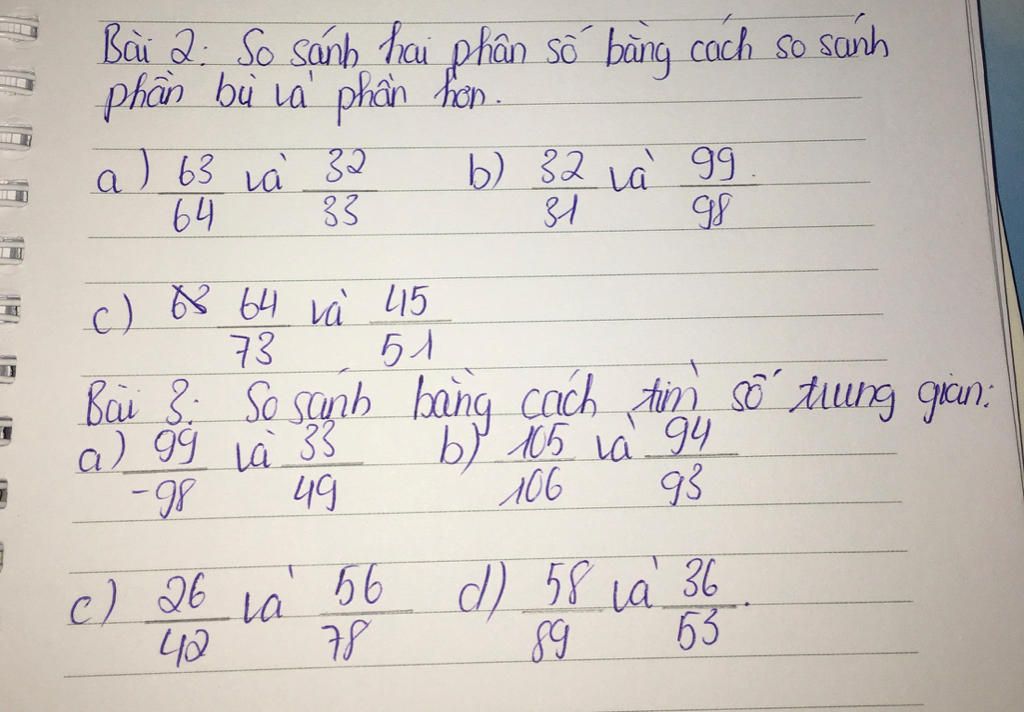 Bài 2: So sánh hai phân số bằng cách so sánh
phần bù và phần hơn.
a) 63/64 và 32/33 b) 32/31 và 99/98
c) 64/73 và 45/51
Bài 3: So sánh bằng cách tìm số trung gian:
a) 99/-98 và 33/49 b) 105/106 và 94/93
c) 26/42 và 56/78 d) 58/89 và 36/53.